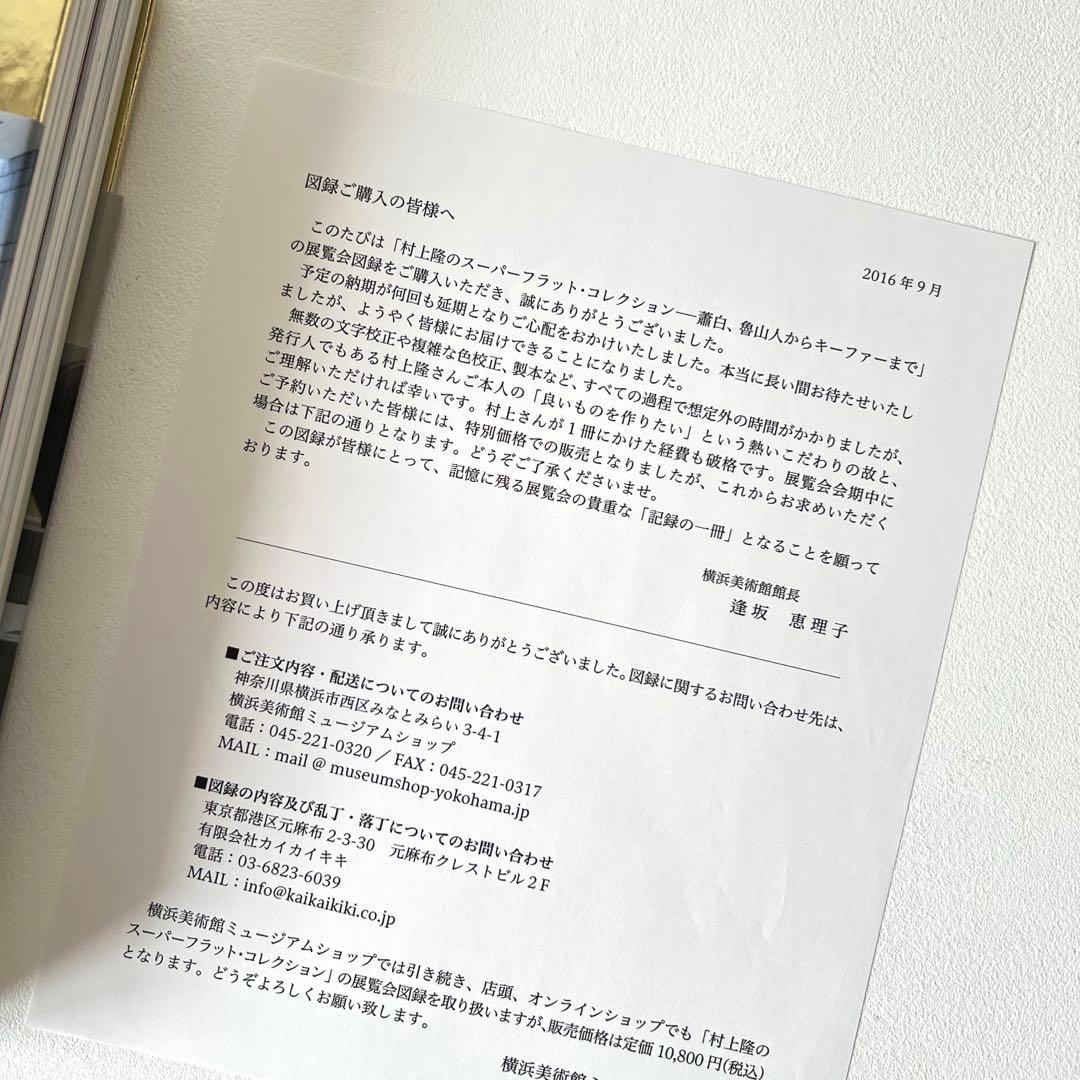 図録ご購入の皆様へ
2016年9月
このたびは「村上隆のスーパーフラット・コレクション―蕭白、魯山人からキーファーまで」
の展覧会図録をご購入いただき、誠にありがとうございました。
予定の納期が何回も延期となりご心配をおかけいたしました。本当に長い間お待たせいたし
ましたが、ようやく皆様にお届けできることになりました。
無数の文字校正や複雑な色校正、製本など、すべての過程で想定外の時間がかかりましたが、
発行人でもある村上隆さんご本人の「良いものを作りたい」という熱いこだわりの故と、
ご理解いただければ幸いです。村上さんが1冊にかけた経費も破格です。展覧会会期中に
ご予約いただいた皆様には、特別価格での販売となりましたが、これからお求めいただく
場合は下記の通りとなります。どうぞご了承くださいませ。
この図録が皆様にとって、記憶に残る展覧会の貴重な「記録の一冊」となることを願って
おります。
横浜美術館館長
逢坂 恵理子
この度はお買い上げ頂きまして誠にありがとうございました。図録に関するお問い合わせ先は、
内容により下記の通り承ります。
■ご注文内容・配送についてのお問い合わせ
神奈川県横浜市西区みなとみらい3-4-1
横浜美術館ミュージアムショップ
電話：045-221-0320 ／ FAX：045-221-0317
MAIL：mail @ museumshop-yokohama.jp
■図録の内容及び乱丁・落丁についてのお問い合わせ
東京都港区元麻布2-3-30 元麻布クレストビル2F
有限会社カイカイキキ
電話：03-6823-6039
MAIL：info@kaikaikiki.co.jp
横浜美術館ミュージアムショップでは引き続き、店頭、オンラインショップでも「村上隆の
スーパーフラット・コレクション」の展覧会図録を取り扱いますが、販売価格は定価10,800円(税込)
となります。どうぞよろしくお願い致します。
横浜美術館